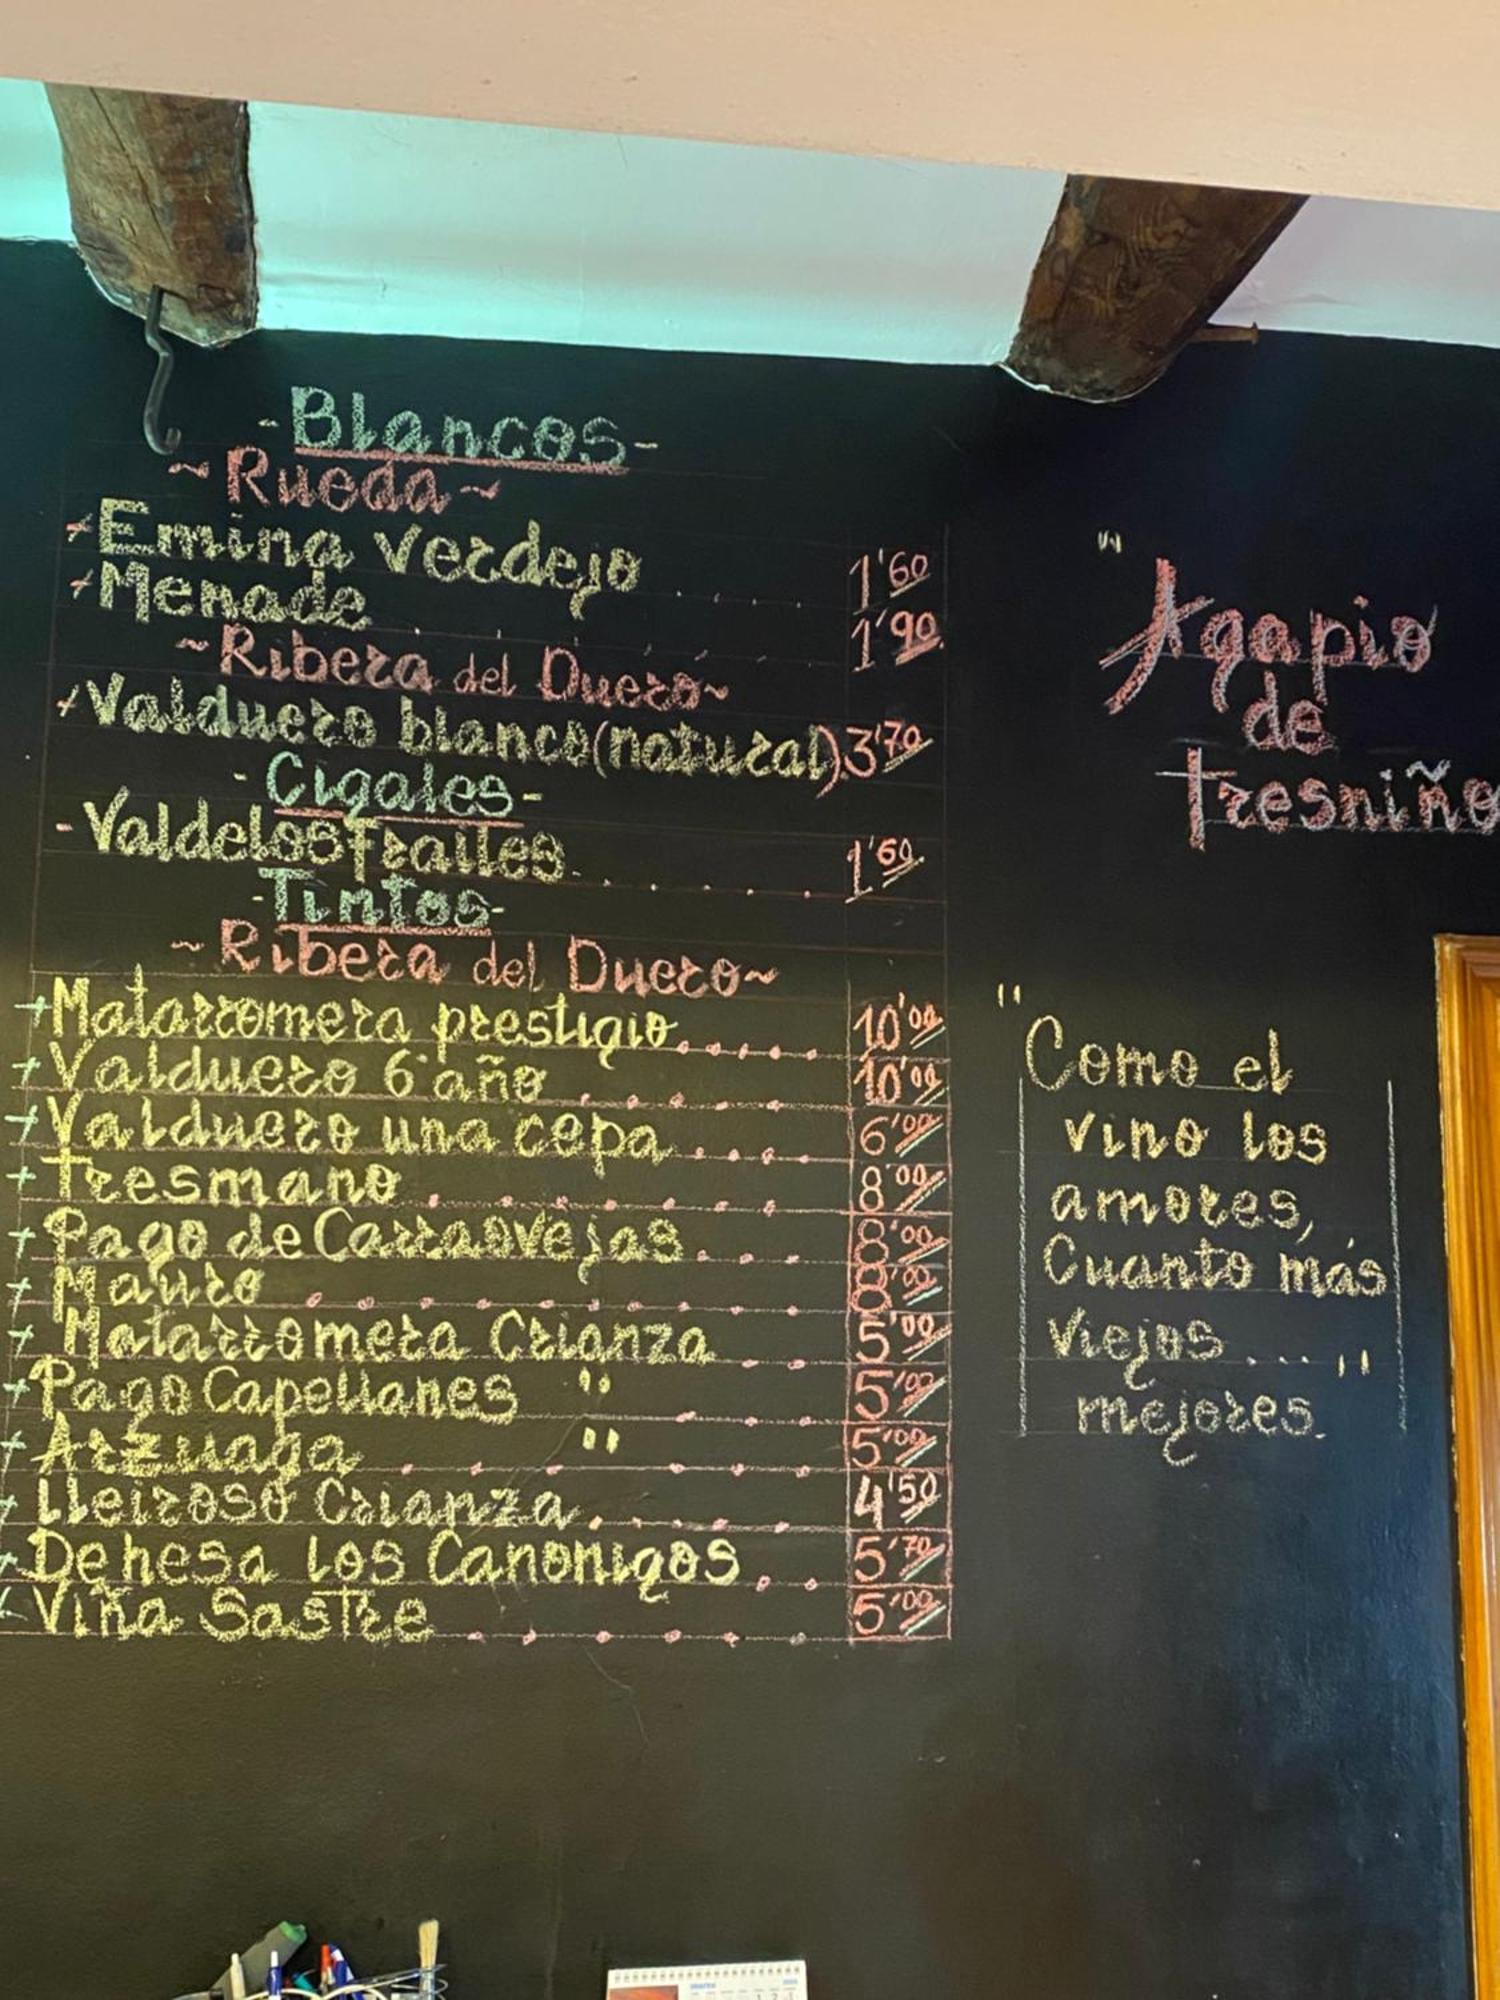 -Blancos-
~Rueda~
+Emina verdejo ..... 1'60
+Menade ....... 1'90
~Ribera del Duero~
+Valduero blanco(natural). 3'70
-Cigales-
-Valdelosfrailes....... 1'60
-Tintos-
~Ribera del Duero~
+Matarromera prestigio..... 10'00
+Valduero 6º año ..... 10'00
+Valduero una cepa.... 6'00
+Tresmano....... 8'00
+Pago de Carrasvejas.... 8'00
+Mauro ......... 8'00
+Matarromera Crianza .. 5'00
+Pago Capellanes " .... 5'00
+Arzuaga " ....... 5'00
+Lleiroso Crianza..... 4'50
+Dehesa los Canonigos .. 5'70
+Viña Sastre ...... 5'00
"Agapio
de
Tresniño
"Como el
vino los
amores,
Cuanto más
viejos ... "
mejores.